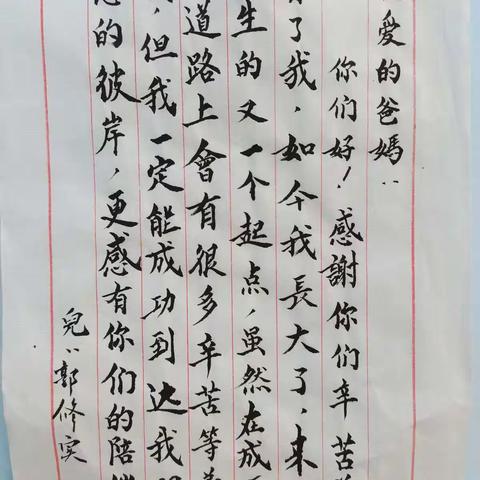 爱的爸媽:
你们好！感謝你们辛苦
了我，如今我長大了，来
生的又一个起点，虽然在成
道路上會有很多辛苦等
，但我一定能成功到达我
的彼岸，更感有你们的陪
兒：郭修实